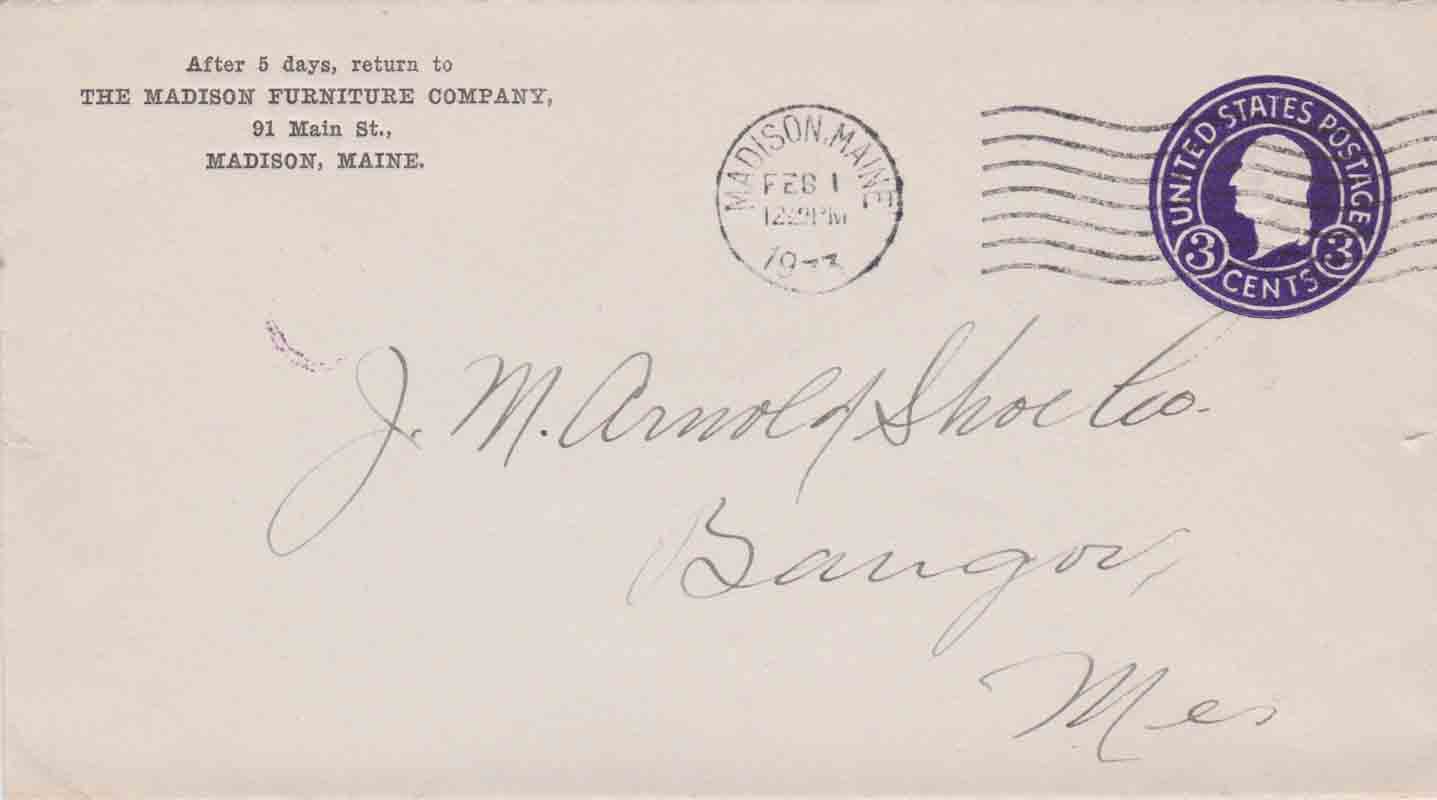 After 5 days, return to
THE MADISON FURNITURE COMPANY,
91 Main St.,
MADISON, MAINE.
MADISON, MAINE
FEB 1
PM
1933
UNITED STATES POSTAGE
3 CENTS 3
J. M. Arnold Shoe Co.
Bangor,
Me